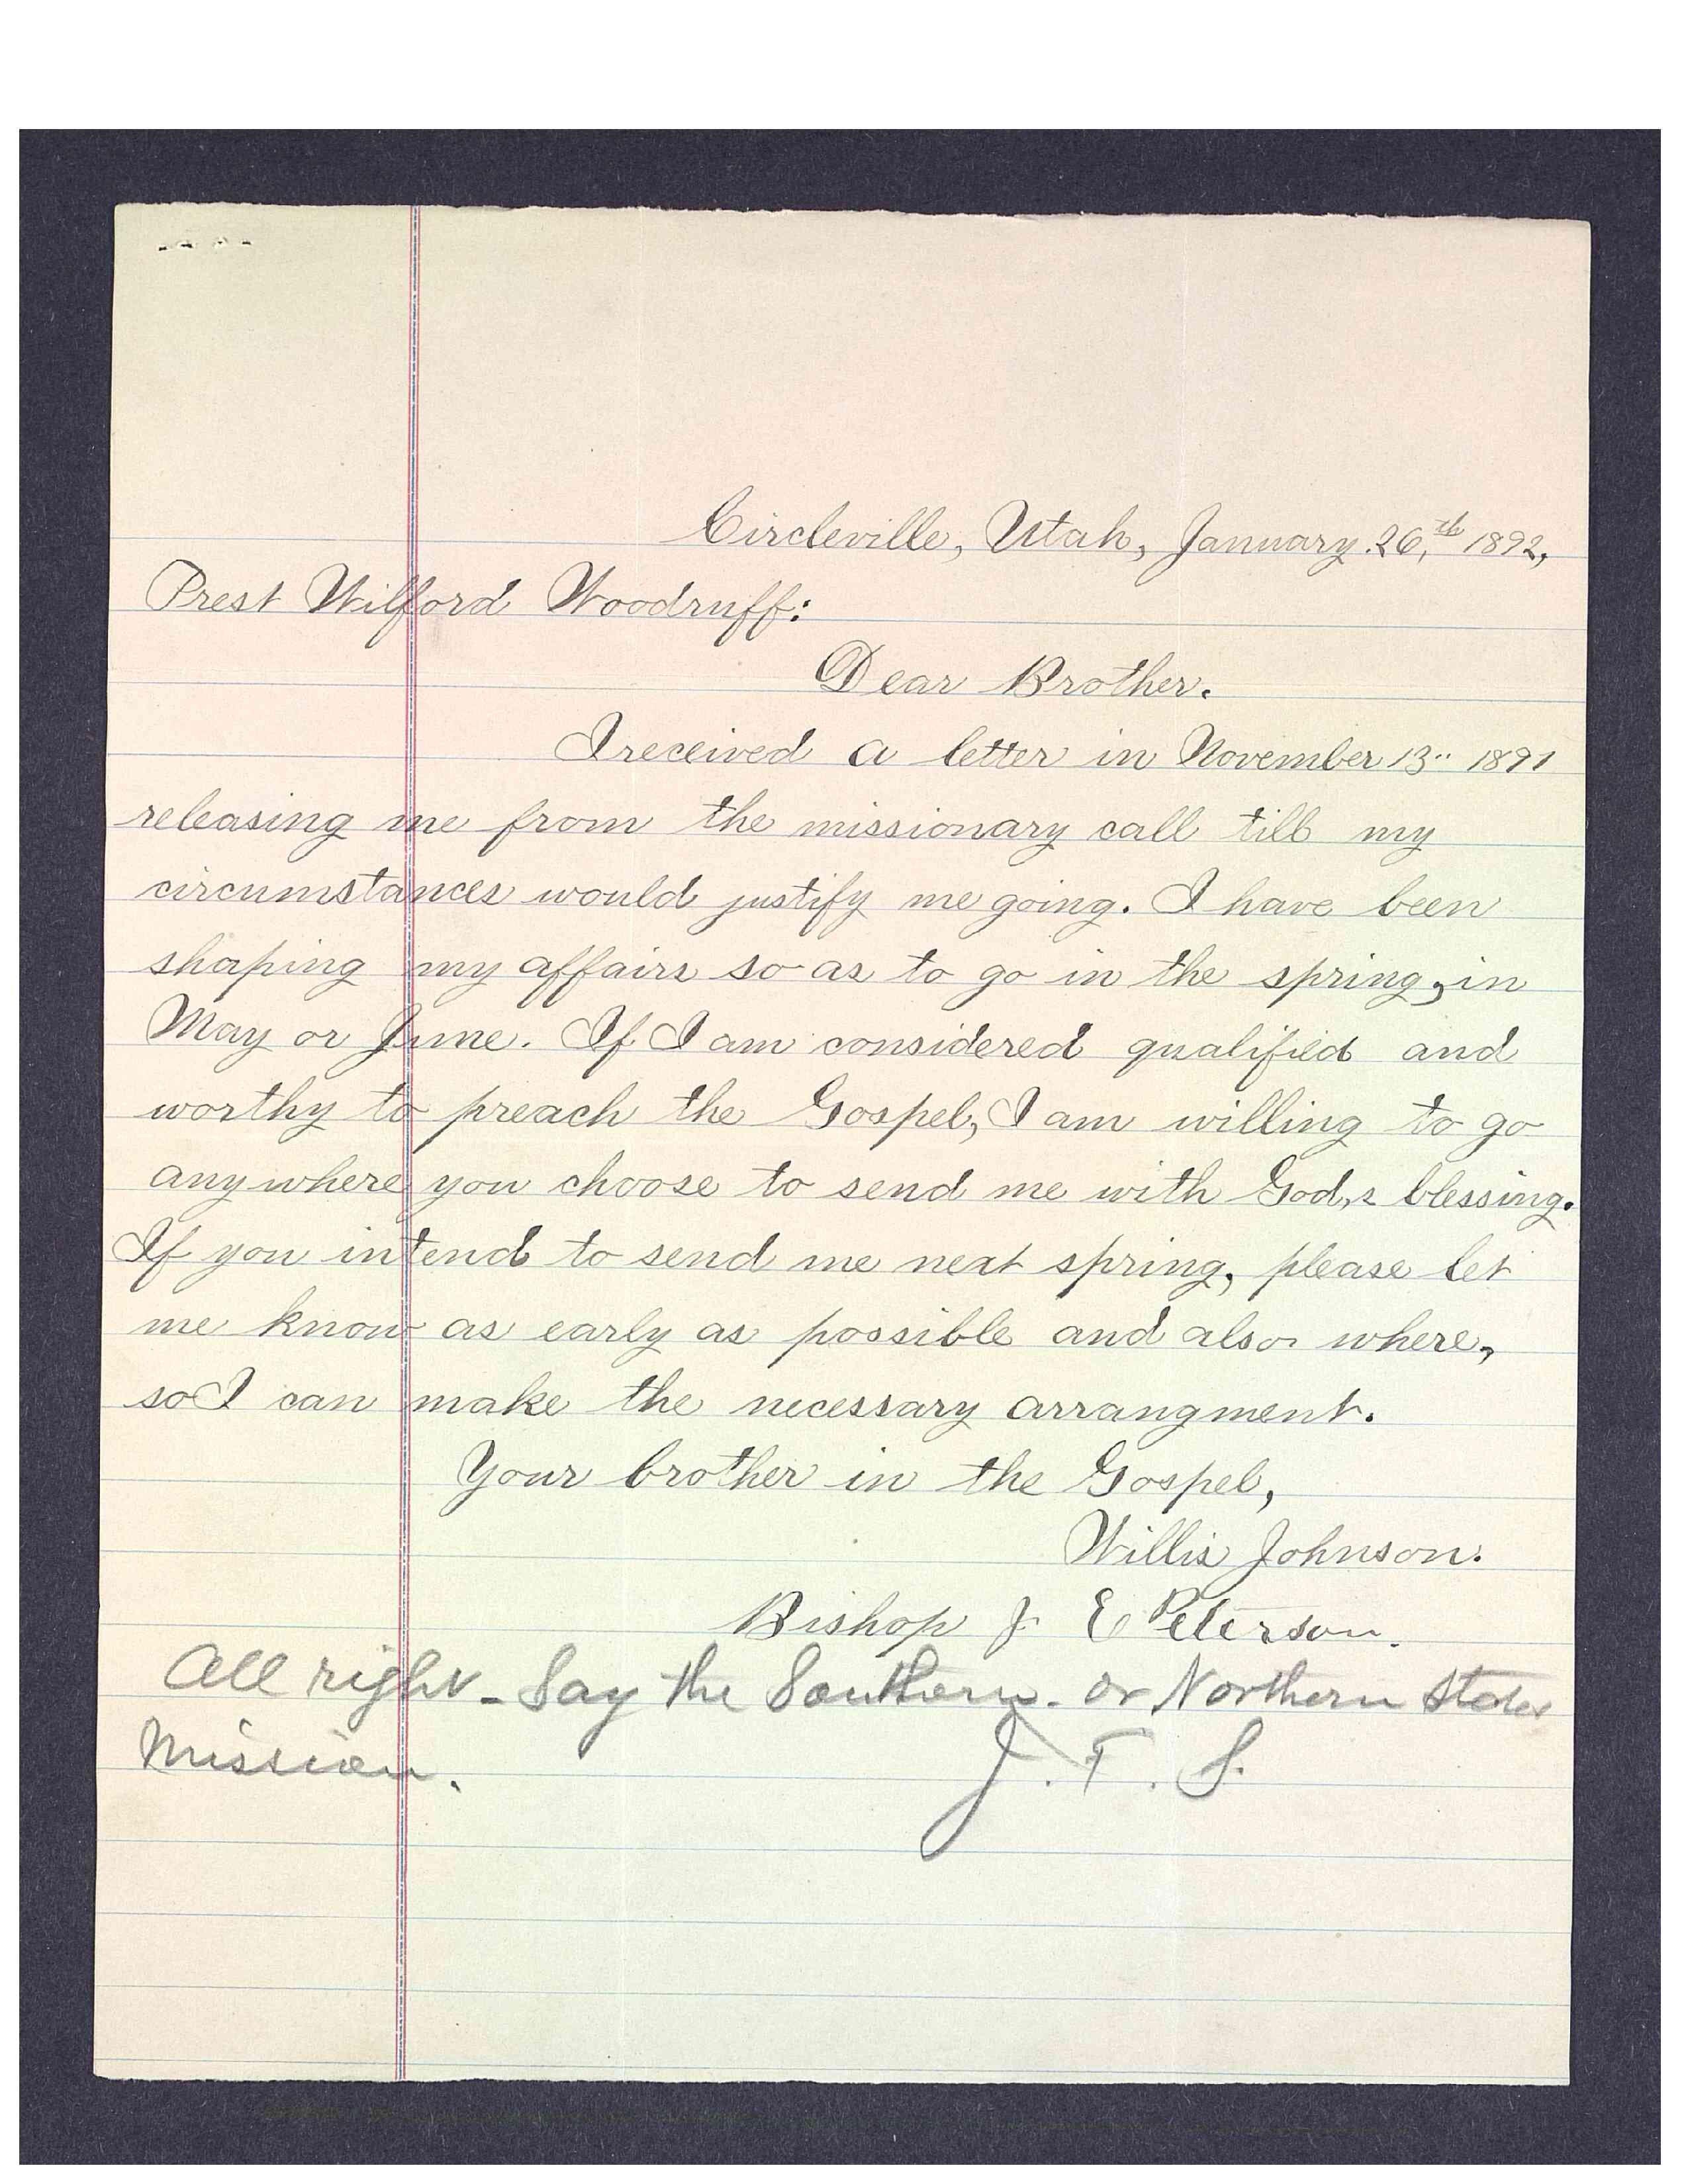 Circleville, Utah, January. 26,th 1892,
Prest Wilford Woodruff:
Dear Brother.
I received a letter in November 13" 1891
releasing me from the missionary call till my
circumstances would justify me going. I have been
shaping my affairs so as to go in the spring, in
May or June. If I am considered qualified and
worthy to preach the Gospel, I am willing to go
anywhere you choose to send me with God,s blessing.
If you intend to send me next spring, please let
me know as early as possible and also where,
so I can make the necessary arrangment.
Your brother in the Gospel,
Willis Johnson.
Bishop J E Peterson.
All right - Say the Southern - or Northern States
Mission.
J. F. S.